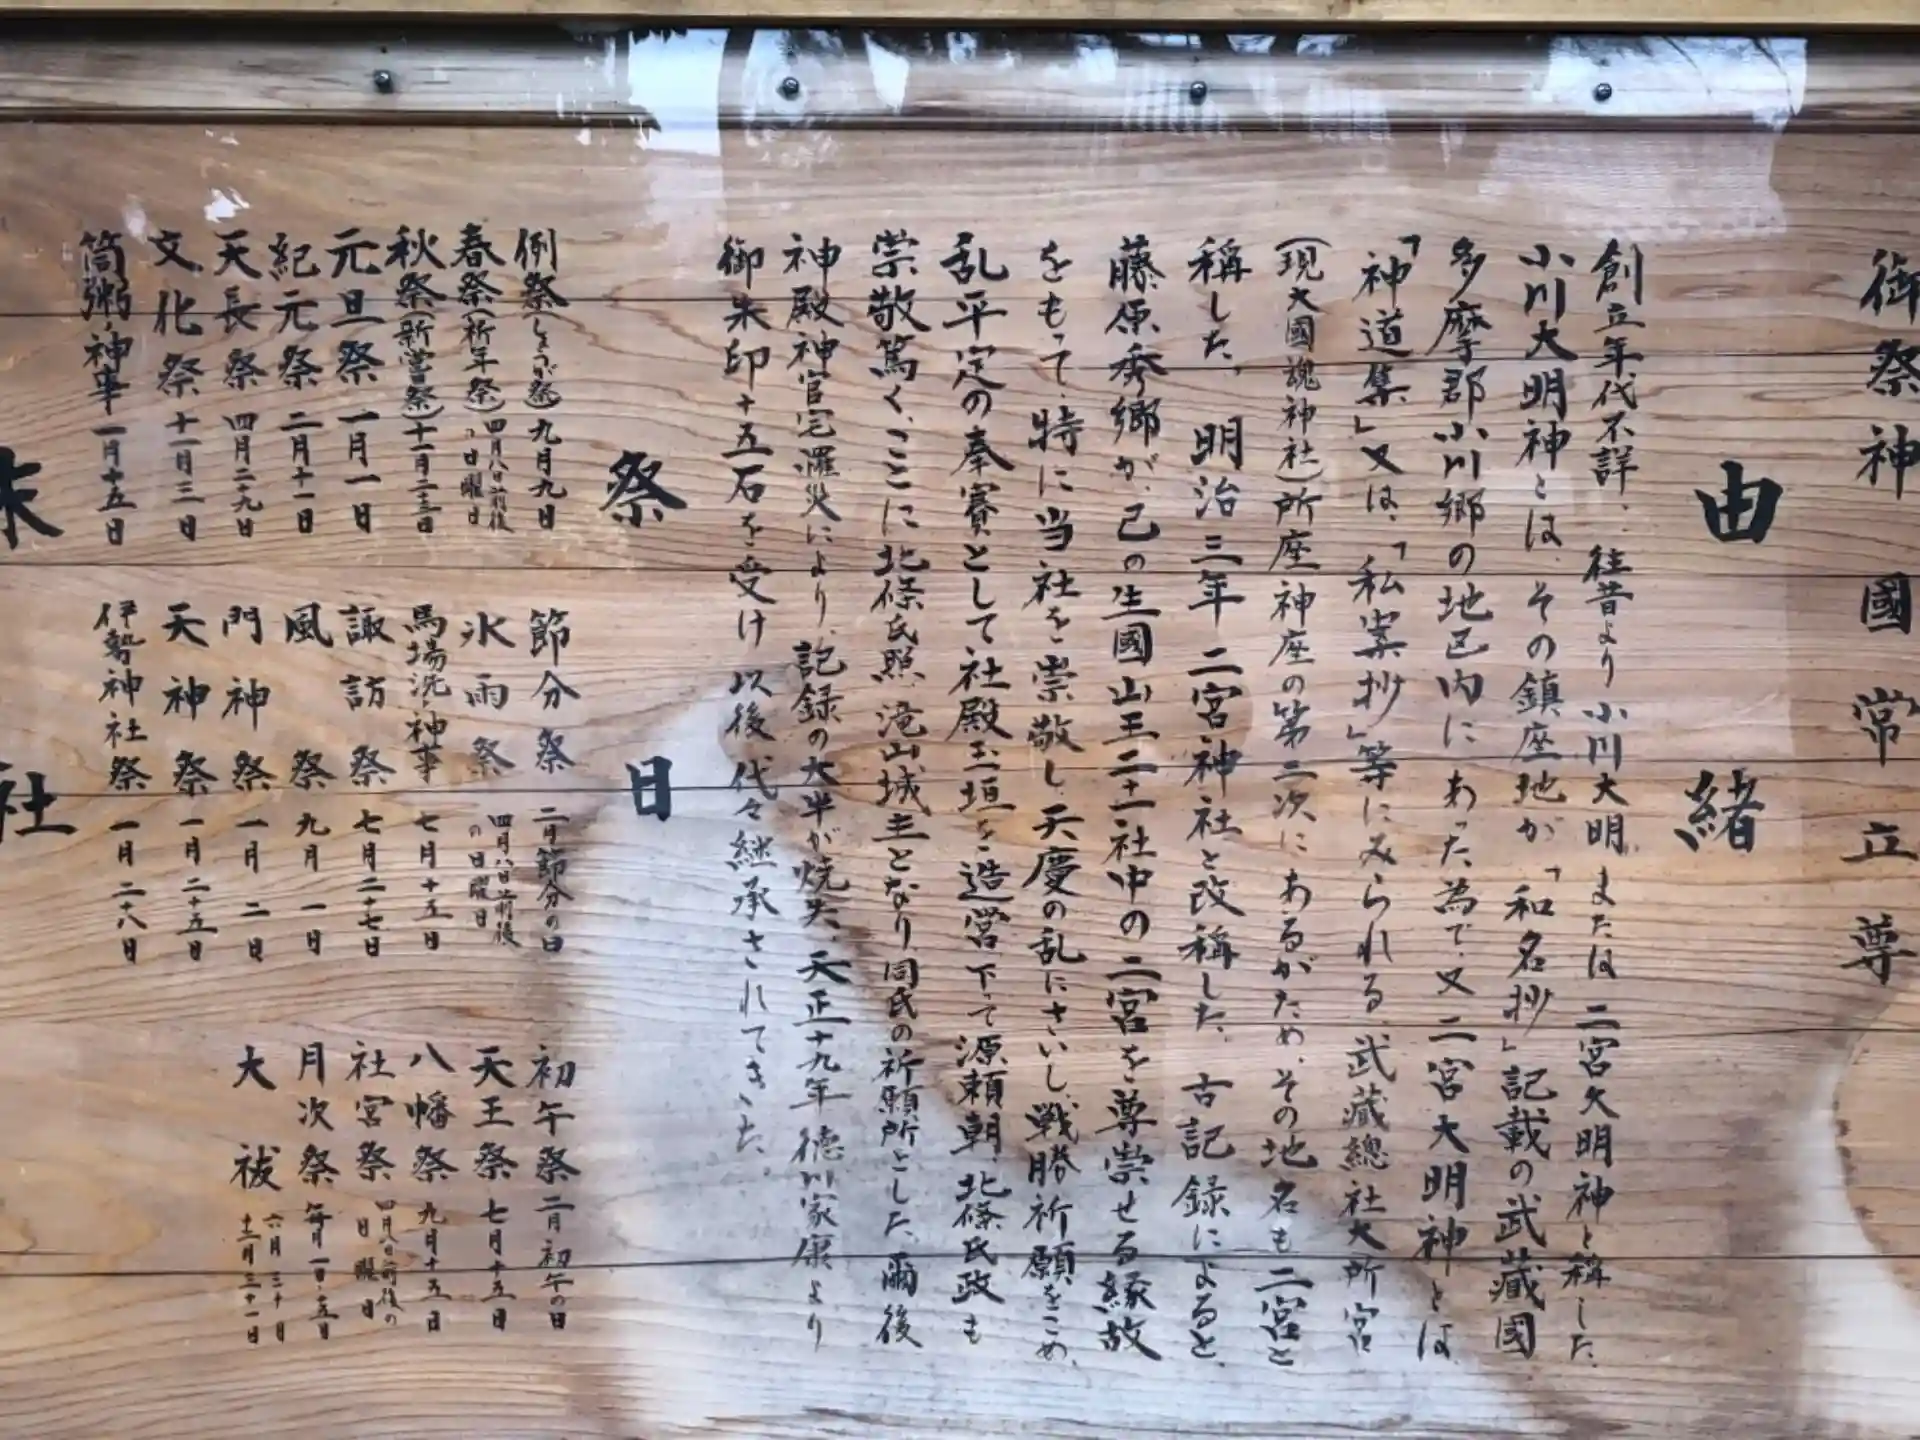 御祭神 國常立尊
由緒
創立年代不詳、往昔より小川大明、または二宮大明神と稱した。
小川大明神とは、その鎮座地が「和名抄」記載の武蔵國
多摩郡小川郷の地区内にあった為で、又二宮大明神とは、
「神道集」又は、「私案抄」等にみられる、武蔵總社大所宮
(現大國魂神社)所座神座の第二次にあるがため、その地名も二宮と
稱した。明治三年二宮神社と改稱した。古記録によると、
藤原秀郷が、己の生國山王二十一社中の二宮を尊崇せる縁故
をもって、特に当社を崇敬し、天慶の乱にさいし、戦勝祈願をこめ、
乱平定の奉賽として社殿玉垣を造営、下って源頼朝、北條氏政も
崇敬篤く、ことに北條氏照滝山城主となり、同氏の祈願所とした。爾後
神殿神官宅罹災により、記録の大半が焼失、天正十九年徳川家康より
御朱印十五石を受け以後代々継承されてきた。
祭日
例祭(しょうが祭)九月九日
春祭(祈年祭)四月八日前後の日曜日
秋祭(新嘗祭)十一月二十三日
元旦祭 一月一日
紀元祭 二月十一日
天長祭 四月二十九日
文化祭 十一月三日
筒粥ノ神事 一月十五日
節分祭 二月節分の日
氷雨祭 四月八日前後の日曜日
馬場洗ノ神事 七月十五日
諏訪祭 七月二十七日
風祭 九月一日
門神祭 一月二日
天神祭 一月二十五日
伊勢神社祭 一月二十八日
初午祭 二月初午の日
天王祭 七月十五日
八幡祭 九月十五日
社宮祭 四月八日前後の日曜日
月次祭 毎月一日・十五日
大祓 六月三十日 十二月三十一日
末社